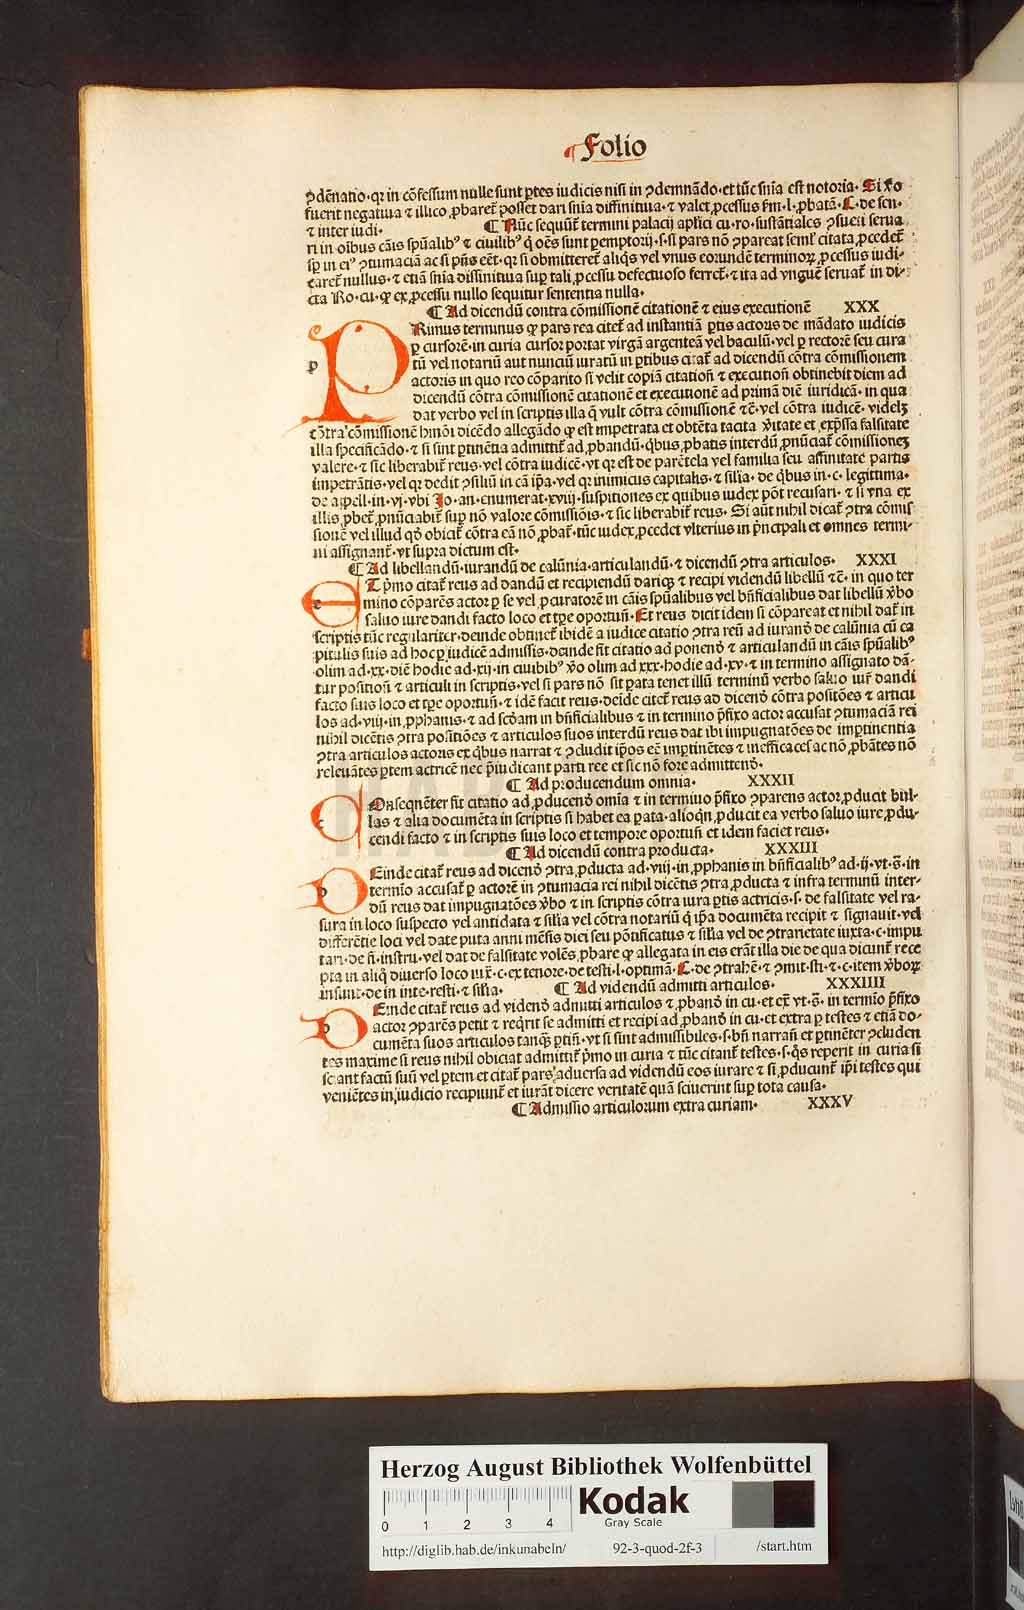 ¶ Folio
ꝯdēnatio·qꝛ in cōfessum nulle sunt ꝑtes iudicis nisi in ꝯdemnādo·et tūc snīa est notoria· Si ꝟo
fuerit negatiua ⁊ illico ꝓbaret᷑ posset dari snīa diffinitiua·⁊ valet ꝓcessus fm·l·ꝓbatā·C·de sen·
⁊ inter iudi· ¶ Nūc sequūt᷑ termini palacij aplici cu·ro·sustātiales ꝯsueti serua
ri in oībus cāis spūalibꝰ ⁊ ciuilibꝰ q̄ oēs sunt ꝑemptorij·s·si pars nō ꝯpareat seml' citata ꝓcedet᷑
sꝑ in eiꝰ ꝯtumaciā ac si pn̄s eēt·qꝛ si obmitteret᷑ aliq̄s vel vnus eorundē terminoꝝ ꝓcessus iudi-
caret᷑ nullus·⁊ etiā snīa diffinitiua suꝑ tali ꝓcessu defectuoso ferret᷑·⁊ ita ad vnguē seruat᷑ in di-
cta Ro·cu·ꝙ ex ꝓcessu nullo sequitur sententia nulla·
¶ Ad dicendū contra cōmissionē citationē ⁊ eius executionē XXX
PRimus terminus ꝙ pars rea citet᷑ ad instantiā ꝑtis actoris de mādato iudicis
ꝑ cursorē·in curia cursor portat virgā argenteā vel baculū·vel ꝑ rectorē seu cura
tū vel notariū aut nunciū iuratū in ꝑtibus citat᷑ ad dicendū cōtra cōmissionem
actoris in quo reo cōparito si velit copiā citation̄ ⁊ execution̄ obtinebit diem ad
dicendū cōtra cōmissionē citationē et executionē ad primā diē iuridicā·in qua
dat verbo vel in scriptis illa q̄ vult cōtra cōmissionē ⁊c̄·vel cōtra iudicē·videlꝫ
cōtra cōmissionē hmōi dicēdo allegādo ꝙ est impetrata et obtēta tacita ꝟitate et exp̄ssa falsitate
illa specificādo·⁊ si sint ꝑtinētia admittit᷑ ad ꝓbandū·q̇bus ꝓbatis interdū ꝓnūciat᷑ cōmissioneꝫ
valere·⁊ sic liberabit᷑ reus·vel cōtra iudicē·vt qꝛ est de parētela vel familia seu affinitate partis
impetrātis·vel qꝛ dedit ꝯsiliū in cā ip̄a·vel qꝛ inimicus capitalis·⁊ silīa·de q̇bus in·c·legittima·
de appell·in·vj·vbi Jo·an·enumerat·xviij·suspitiones ex quibus iudex pōt recusari·⁊ si vna ex
illis ꝓbet᷑ ꝓnūciabit᷑ suꝑ nō valore cōmissiōis·⁊ sic liberabit᷑ reus· Si aūt nihil dicat᷑ ꝯtra cōmis
sionē vel illud qd̕ obicit᷑ cōtra eā nō ꝓbat᷑·tūc iudex ꝓcedet vlterius in p̄ncipali et omnes termi-
ni assignant᷑·vt supra dictum est·
¶ Ad libellandū·iurandū de calūnia·articulandū·⁊ dicendū ꝯtra articulos· XXXI
ET p̄mo citat᷑ reus ad dandū et recipiendū dariq̄ꝫ ⁊ recipi videndū libellū ⁊c̄·in quo ter
mino cōparēs actor ꝑ se vel ꝓcuratorē in cāis spūalibus vel bn̄ficialibus dat libellū ꝟbo
saluo iure dandi facto loco et tꝑe oportun̄· Et reus dicit idem si cōpareat et nihil dat᷑ in
scriptis tūc regulariter·deinde obtinet᷑ ibidē a iudice citatio ꝯtra reū ad iurand̕ de calūnia cū ca
pitulis suis ad hoc ꝑ iudicē admissis·deinde fit citatio ad ponend̕ ⁊ articulandū in cāis spūalibꝰ
olim ad·xx·diē hodie ad·xij·in ciuibibꝰ ꝟo olim ad xxx·hodie ad·xv·⁊ in termino assignato dā-
tur position̄ ⁊ articuli in scriptis·vel si pars nō sit ꝑata tenet illū terminū verbo saluo iur̄ dandi
facto suis loco et tꝑe oportun̄·⁊ idē facit reus·deīde citet᷑ reus ad dicend̕ cōtra positōes ⁊ articu
los ad·viij·in ꝓphanis·⁊ ad scd̕am in bn̄ficialibus ⁊ in termino p̄fixo actor accusat ꝯtumaciā rei
nihil dicētis ꝯtra positiōes ⁊ articulos suos interdū reus dat ibi impugnatōes de imꝑtinentia
ꝯtra articulos actoris ex q̇bus narrat ⁊ ꝯcludit ip̄os eē imꝑtinētes ⁊ inefficaces ac nō ꝓbātes nō
releuātes ꝑtem actricē nec p̄iudicant parti ree et sic nō fore admittend̕·
¶ Ad producendum omnia· XXXII
COnseqnēter fit citatio ad ꝓducend̕ omīa ⁊ in termino p̄fixo ꝯparens actor ꝓducit bul-
las ⁊ alia documēta in scriptis si habet ea ꝑata·alioq̇n ꝓducit ea verbo saluo iure ꝓdu-
cendi facto ⁊ in scriptis suis loco et tempore oportun̄ et idem faciet reus·
¶ Ad dicendū contra producta· XXXIII
DEinde citat᷑ reus ad dicend̕ ꝯtra ꝓducta ad·viij·in ꝓphanis in bn̄ficialibꝰ ad·ij·vt·s̄·in
termīo accusat᷑ ꝑ actorē in ꝯtumacia rei nihil dicētis ꝯtra ꝓducta ⁊ infra terminū inter-
dū reus dat impugnatōes ꝟbo ⁊ in scriptis cōtra iura ꝑtis actricis·s·de falsitate vel ra-
sura in loco suspecto vel antidata ⁊ silīa vel cōtra notariū q̄ ip̄a documēta recipit ⁊ signauit·vel
differētie loci vel date puta anni mēsis diei seu pōtificatus ⁊ silīa vel de ꝯtrarietate iuxta·c·impu
tari·de fi·instru·vel dat de falsitate volēs ꝓbare ꝙ allegata in eis erāt illa die de qua dicunt᷑ rece
pta in aliq̄ diuerso loco iux̄·c·ex tenore·de testi·l·optimā· C·de ꝯtrahē·⁊ ꝯmit·sti·⁊·c·item ꝟboꝝ
insunt·de in inte·resti·⁊ silīa· ¶ Ad videndū admitti articulos· XXXIIII
DEinde citat᷑ reus ad vidend̕ admitti articulos ⁊ ꝓband̕ in cu·et ex̄ vt·s̄·in termīo p̄fixo
actor ꝯparēs petit ⁊ req̇rit se admitti et recipi ad ꝓband̕ in cu·et extra ꝑ testes ⁊ etiā do-
cumēta suos articulos tanq̄ꝫ ꝑtin̄·vt si sunt admissibiles·s·bn̄ narran̄ et ꝑtinēter ꝯcluden
tes maxime si reus nihil obiciat admittit᷑ p̄mo in curia ⁊ tūc citant᷑ testes·s·q̄s reperit in curia si
sciant factū suū vel ꝑtem et citat᷑ pars aduersa ad videndū eos iurare ⁊ si ꝓducunt᷑ ip̄i testes qui
veniētes in iudicio recipiunt᷑ et iurāt dicere veritatē quā sciuerint suꝑ tota causa·
¶ Admissio articulorum extra curiam· XXXV
HAB
Herzog August Bibliothek Wolfenbüttel
0 1 2 3 4
Kodak
Gray Scale
http://diglib.hab.de/inkunabeln/ 92-3-quod-2f-3 /start.htm